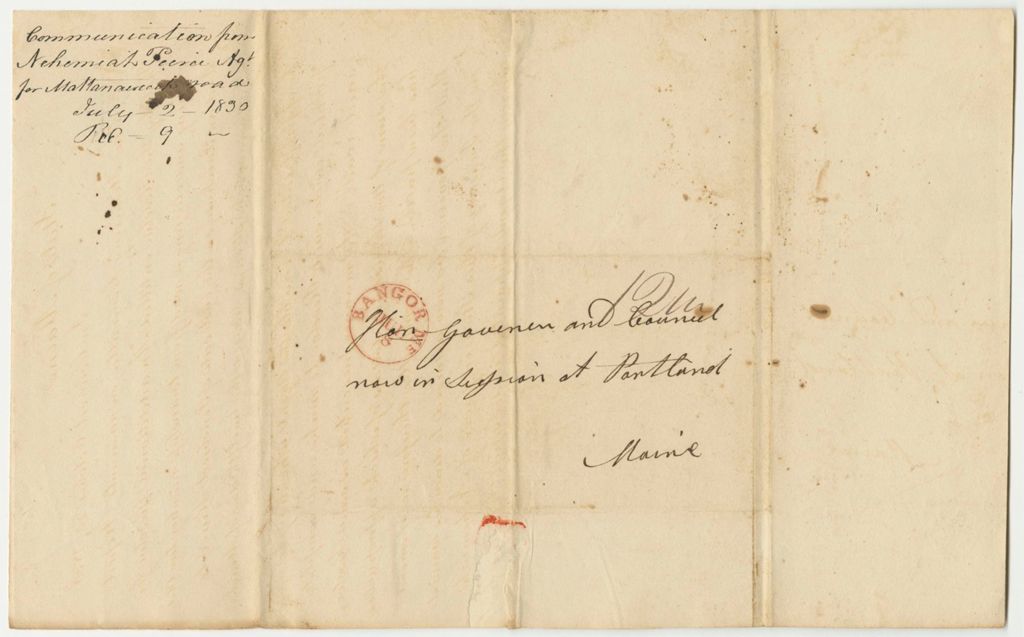 Communication from
Nehemiah Peirce Agt
for Mattanawcook road
July - 2 - 1830
Rec. - 9 -
BANGOR ME
Hon Govener and Council
now in Session at Portland
Maine